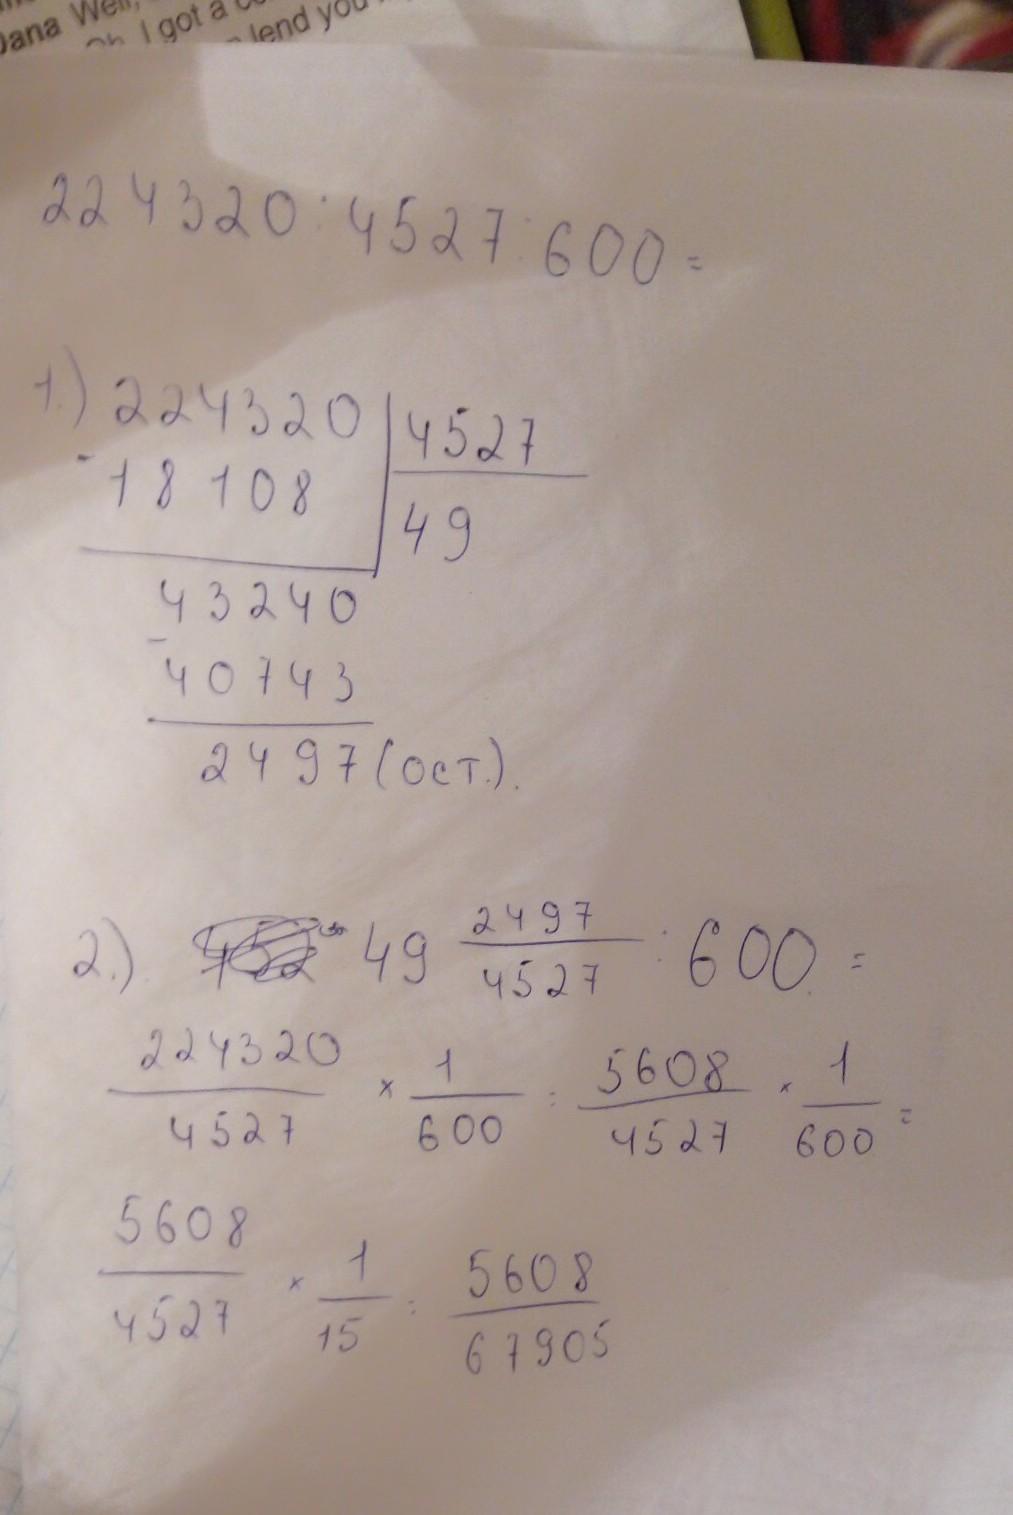 Dana Well,
Oh, I got a
lend you
224320:4527:600=
1.) 224320 | 4527
- 18108 | 49
43240
- 40743
2497 (ост.).
2.) 49 2497/4527 : 600 =
224320/4527 × 1/600 = 5608/4527 × 1/600 =
5608/4527 × 1/15 = 5608/67905